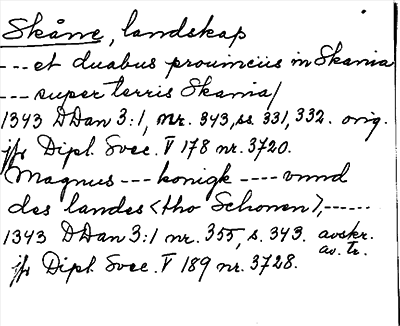 Skåne, landskap
--- et duabus prouinciis in Skania
--- super terris Skania/
1343 DDan 3:1, nr. 343, ss. 331, 332. orig.
jfr Dipl. Svec. V 178 nr. 3720.
Magnus --- konigk ---- vnnd
des landes <tho Schonen>, ------
1343 DDan 3:1 nr. 355, s. 343. avskr.
av. tr.
jfr Dipl. Svec. V 189 nr. 3728.